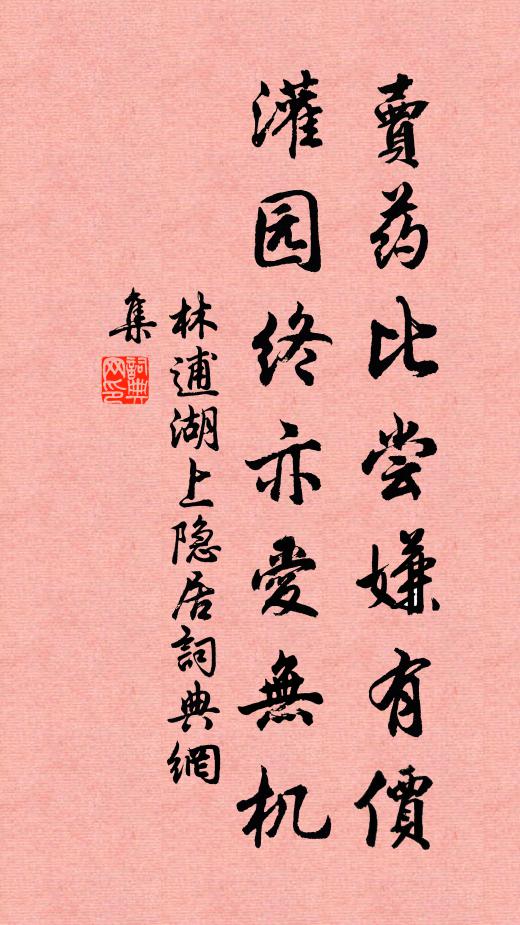 賣药比尝嫌有價
灌园终亦愛無机
林逋湖上隐居詞典網
集
詞典
网印